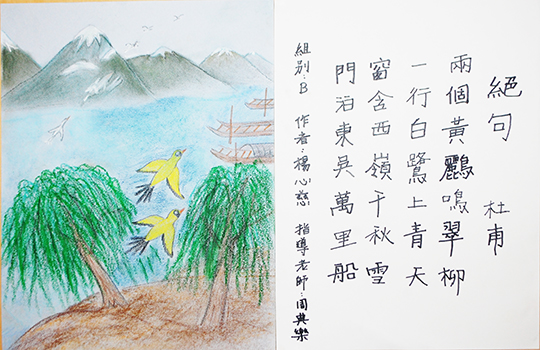 絕句 杜甫
兩個黃鸝鳴翠柳
一行白鷺上青天
窗含西嶺千秋雪
門泊東吳萬里船
組別:B 作者:楊心慈 指導老師:周典樂